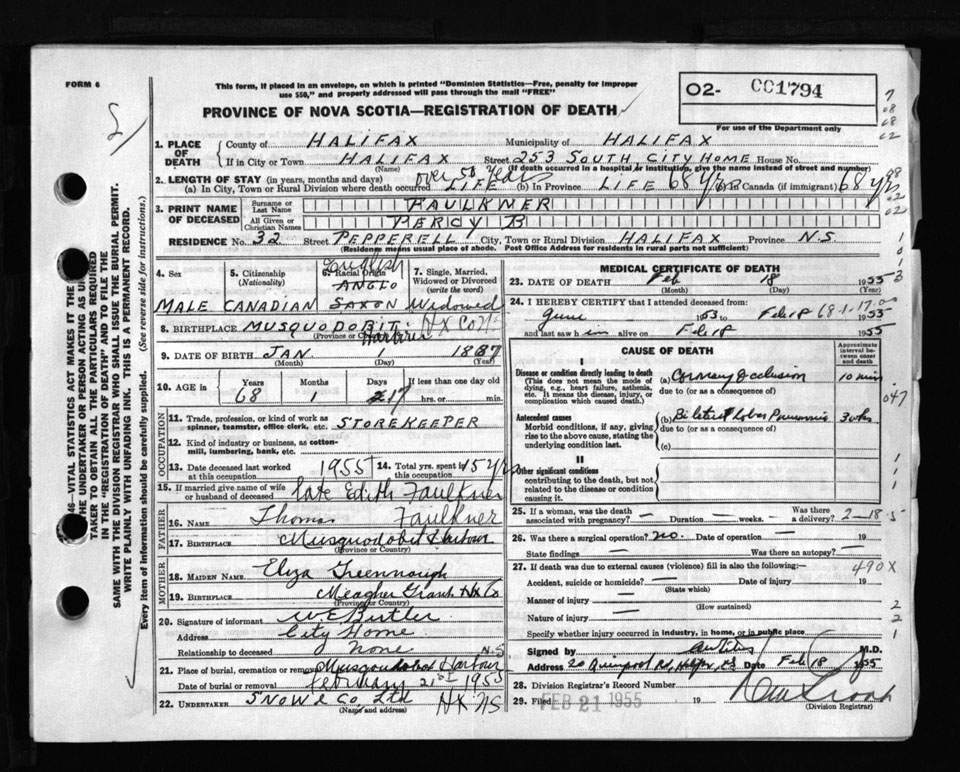 FORM 6
This form, if placed in an envelope, on which is printed "Dominion Statistics—Free, penalty for improper
use $50," and properly addressed will pass through the mail "FREE"
PROVINCE OF NOVA SCOTIA—REGISTRATION OF DEATH
02- 001794
For use of the Department only
1. PLACE OF DEATH
County of HALIFAX Municipality of HALIFAX
If in City or Town HALIFAX Street 253 SOUTH, CITY HOME House No.
(Name) (If death occurred in a hospital or institution, give its name instead of street and number)
2. LENGTH OF STAY (in years, months and days) over 50 Years
(a) In City, Town or Rural Division where death occurred LIFE (b) In Province LIFE 68 Yrs Canada (if immigrant) 68 yrs
3. PRINT NAME OF DECEASED
Surname or Last Name FAULKNER
All Given or Christian Names PERCY B
RESIDENCE No. 32 Street PEPPERELL City, Town or Rural Division HALIFAX Province N.S.
(Residence means usual place of abode. Post Office Address for rural parts not sufficient)
4. Sex 5. Citizenship (Nationality) 6. Racial Origin 7. Single, Married, Widowed or Divorced (write the word)
English
ANGLO
MALE CANADIAN SAXON Widowed
8. BIRTHPLACE MUSQUODOBIT Harbour HX Co NS
(Province or Country)
9. DATE OF BIRTH JAN 1 1887
(Month) (Day) (Year)
10. AGE in Years Months Days If less than one day old
68 1 17 hrs. or min.
OCCUPATION
11. Trade, profession, or kind of work as spinner, teamster, office clerk, etc. STOREKEEPER
12. Kind of industry or business, as cotton-mill, lumbering, bank, etc.
13. Date deceased last worked at this occupation 1955 14. Total yrs. spent in this occupation 15 yrs
15. If married give name of wife or husband of deceased late Edith Faulkner
FATHER
16. NAME Thomas Faulkner
17. BIRTHPLACE Musquodobit Harbour
(Province or Country)
MOTHER
18. MAIDEN NAME Eliza Greennough
19. BIRTHPLACE Meagher Grant HX Co
(Province or Country)
20. Signature of informant W.E. Butler
Address City Home
Relationship to deceased None
N.S
21. Place of burial, cremation or removal Musquodobit Harbour
Date of burial or removal february 21st 1955
22. UNDERTAKER SNOW & Co, Ltd HX NS
(Name and address)
MEDICAL CERTIFICATE OF DEATH
23. DATE OF DEATH Feb 18 1955
(Month) (Day)
24. I HEREBY CERTIFY that I attended deceased from
June 1953 to Feb 18 1955
68-1-17
and last saw him alive on Feb 18 1955
CAUSE OF DEATH
Approximate interval between onset and death
I
Disease or condition directly leading to death
(This does not mean the mode of dying, e.g., heart failure, asthenia, etc. It means the disease, injury, or complication which caused death.)
(a) Coronary Occlusion 10 min
due to (or as a consequence of)
Antecedent causes
Morbid conditions, if any, giving rise to the above cause, stating the underlying condition last.
(b) Bilateral lobar Pneumonia
due to (or as a consequence of)
(c)
II
Other significant conditions
contributing to the death, but not related to the disease or condition causing it.
25. If a woman, was the death associated with pregnancy? — Duration — weeks. — Was there a delivery? 2-18-5
26. Was there a surgical operation? no. Date of operation — 19
State findings — Was there an autopsy? —
27. If death was due to external causes (violence) fill in also the following:— 490X
Accident, suicide or homicide? — Date of injury 19
(State which)
Manner of injury —
(How sustained)
Nature of injury —
Specify whether injury occurred in industry, in home, or in public place
Signed by M.D.
Address 20 Quinpool Rd, Halifax, NS Date Feb 18 1955
28. Division Registrar's Record Number
29. Filed FEB 21 1955 19
(Division Registrar)
SAME WITH THE DIVISION REGISTRAR WHO SHALL ISSUE THE BURIAL PERMIT.
WRITE PLAINLY WITH UNFADING INK. THIS IS A PERMANENT RECORD.
Every item of information should be carefully supplied. (See reverse side for instructions.)